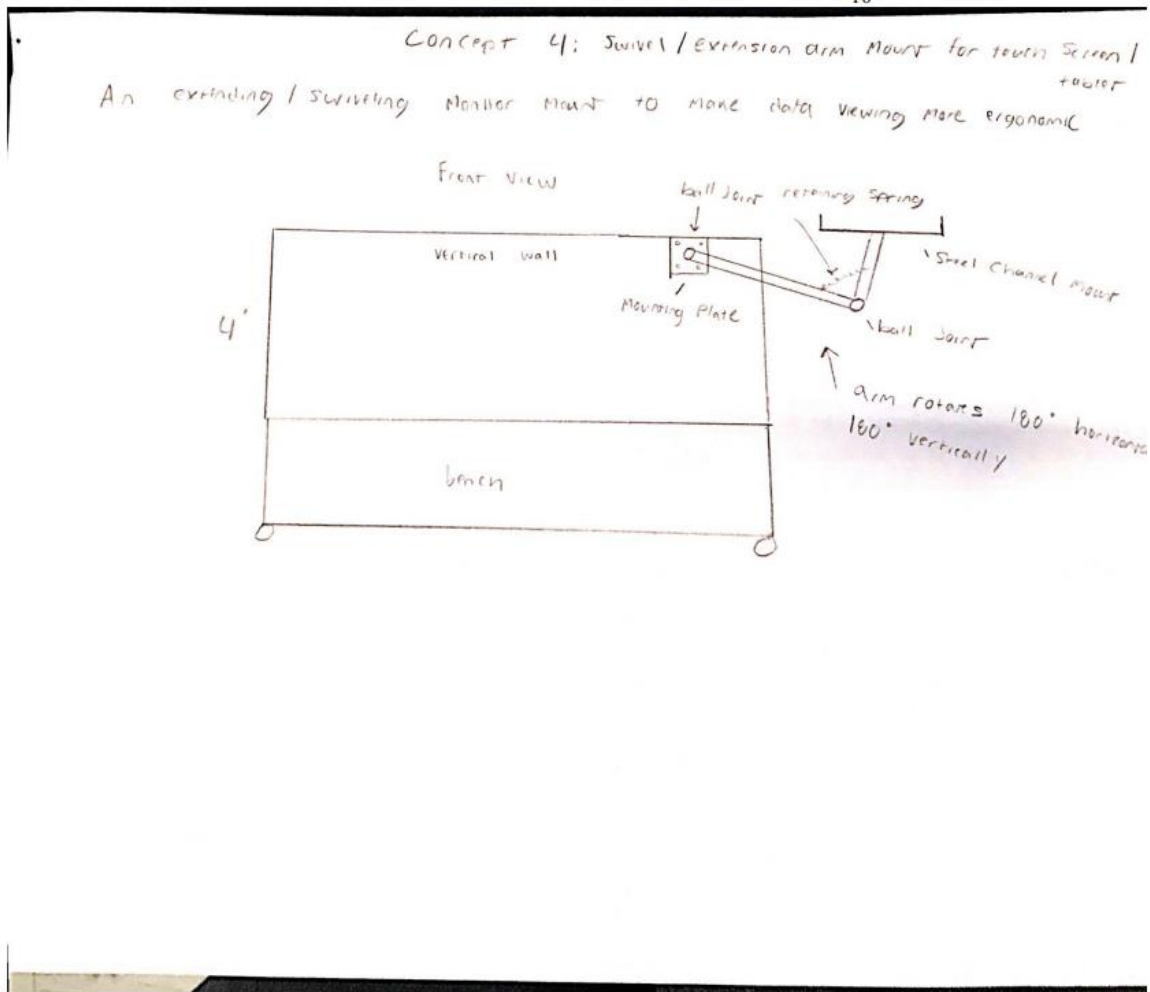 Concept 4: Swivel/Extension arm Mount for touch Screen/
tablet
An extending/swiveling Monitor Mount to make data viewing more ergonomic
Front View
ball joint retaining spring
Vertical wall
Steel Channel Mount
4'
Mounting Plate
ball joint
arm rotates 180°
180° vertically
bench